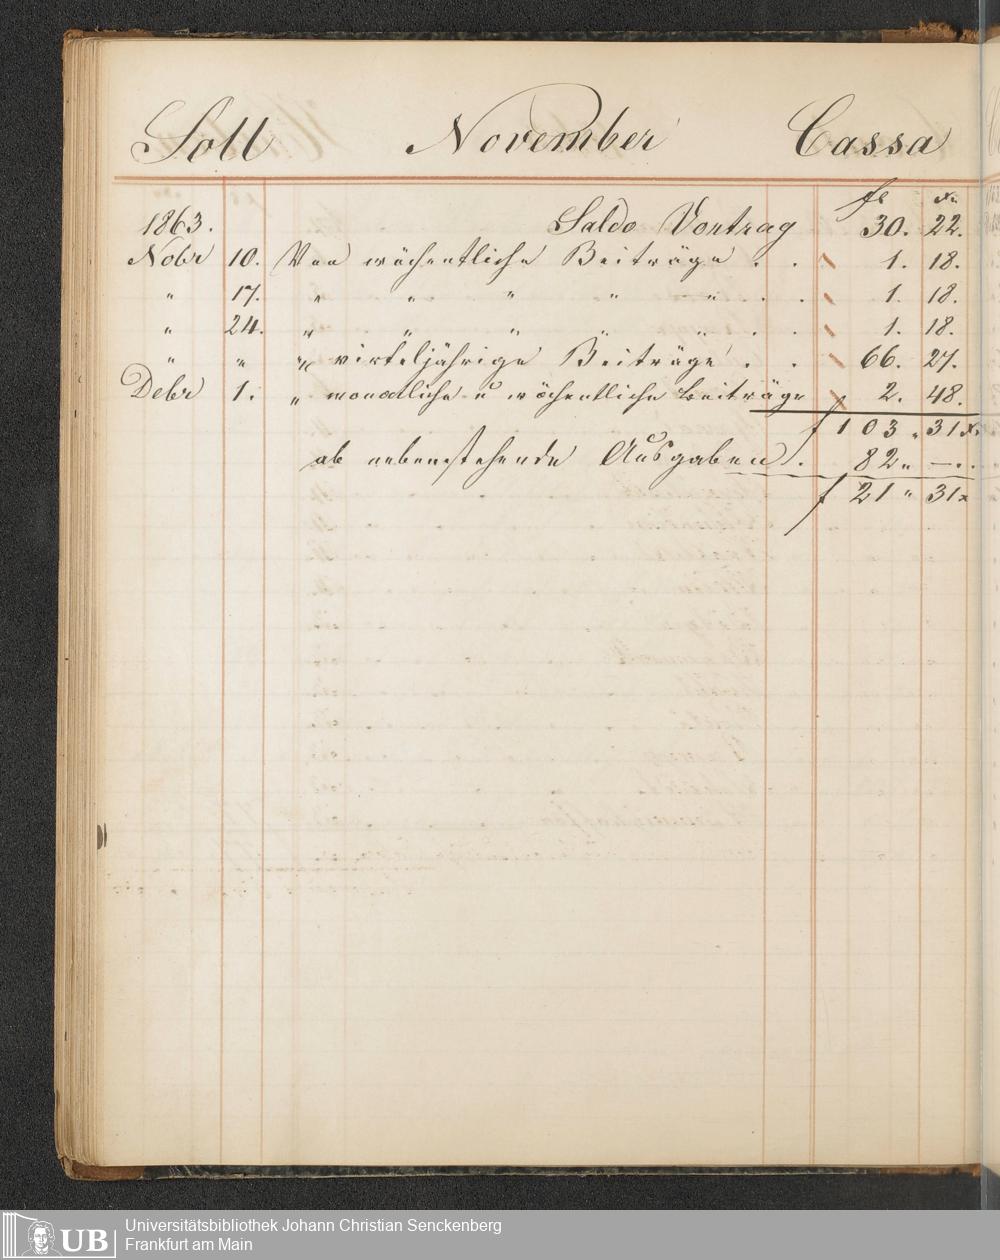 Soll November Cassa
fl xr
1863. Saldo Vortrag 30. 22.
Nobr 10. Von wöchentliche Beiträge . . 1. 18.
" 17. " " " " " . . 1. 18.
" 24. " " " " " . . 1. 18.
" " " virteljährige Beiträge . . 66. 27.
Debr 1. " monatliche u wöchentliche Beiträge 2. 48.
f 103 " 31 x
ab nebenstehende Ausgaben . 82 " — . .
f 21 " 31 x
UB Universitätsbibliothek Johann Christian Senckenberg
Frankfurt am Main